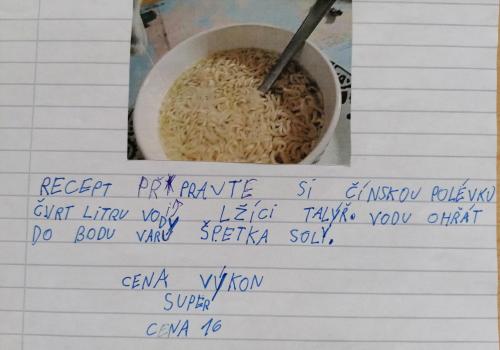 RECEPT PŘIPRAVTE SI ČÍNSKOU POLÉVKU
ČVRT LITRU VODY LŽÍCI TALYŘ. VODU OHŘÁT
DO BODU VARU ŠPETKA SOLY.
CENA VÝKON
SUPER
CENA 16